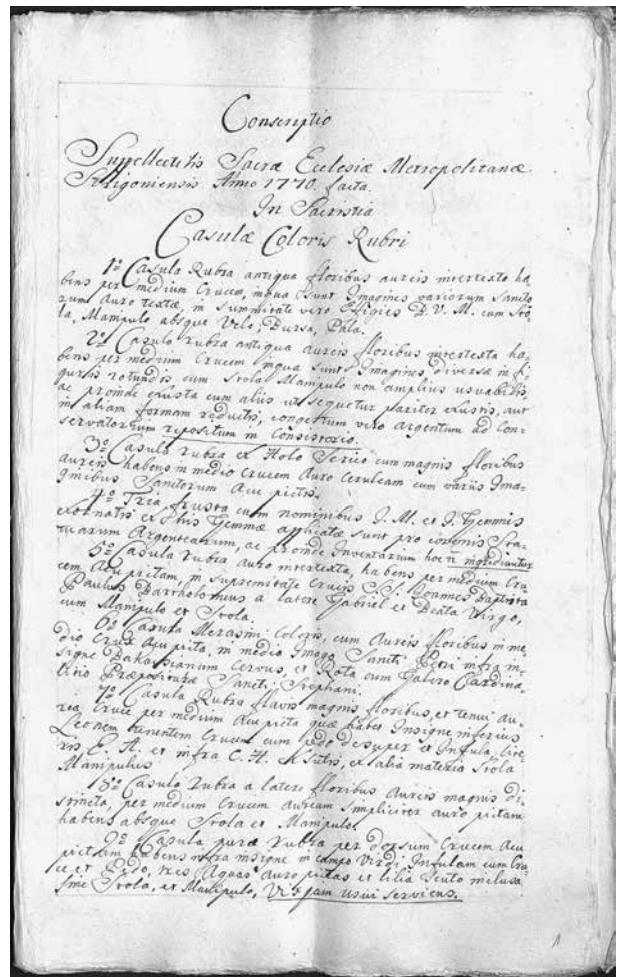 Conscriptio
Suppellectilis Sacræ Ecclesiæ Metropolitanæ
Strigoniensis Anno 1770. facta.
In Sacristia
Casulæ Coloris Rubri
1º Casula Rubra antiqua floribus aureis intertexto ha
bens per medium Crucem, in qua sunt Imagines variorum Sancto
rum Auro textæ, in summitate vero Effigies B. V. M. cum Sto
la, Manipulo absque Velo, Bursa, Pala.
2º Casula rubra antiqua aureis floribus intertexta ha
bens per medium Crucem in qua sunt Imagines diversæ in fi
guris rotundis cum Stola Manipulo non amplius usuabilis,
ac proinde exusta cum aliis ut sequetur pariter exustis, aut
in aliam formam reductis, congestum vero argentum ad Con
servatorium repositum in Consistorio.
3º Casula rubra ex Holo Serico cum magnis floribus
aureis habens in medio Crucem Auro Ceruleam cum variis Ima
ginibus Sanctorum Acu pictis.
4º Tria frusta cum nominibus J. M. et J. Gemmis
exornatis ex his Gemmæ applicatæ sunt pro coronis Sta
tuarum Argentearum, ac proinde Inventarium hoc ñ ingrediuntur
5º Casula rubra auro intertexta, habens per medium Cru
cem Acu pictam, in supremitate Crucis S.S. Joannes Baptista
Paulus Bartholomæus a latere Gabriel et Beata Virgo,
cum Manipulo et Stola.
6º Casula Merasini Coloris, cum Aureis floribus in me
dio Crux Acu picta, in medio Imago Sancti Petri infra in
signe Bakacsianum Cervus, et Rota cum Galero Cardina
litio Præpositurae Sancti Stephani.
7º Casula Rubra flavis magnis floribus, et tenui Au
rea Cruce per medium Acu picta quæ habet Insigne inferius
Leonem tenentem Crucem cum pedo desuper et Infula, lite
ris E. A. et infra C. H. ex alia materia Stola
Manipulus
8º Casula rubra a latere floribus Aureis magnis di
stincta, per medium Crucem Auream simpliciter auro pictam
habens absque Stola et Manipulo.
9º Casula pure rubra per dorsum Crucem Acu
pictam habens infra insigne in campo Viridi Infulam cum Cru
ce et Pedo, tres Aquas Auro pictas et lilia Scuto inclusa
sine Stola, et Manipulo, Vix jam usui serviens.
1